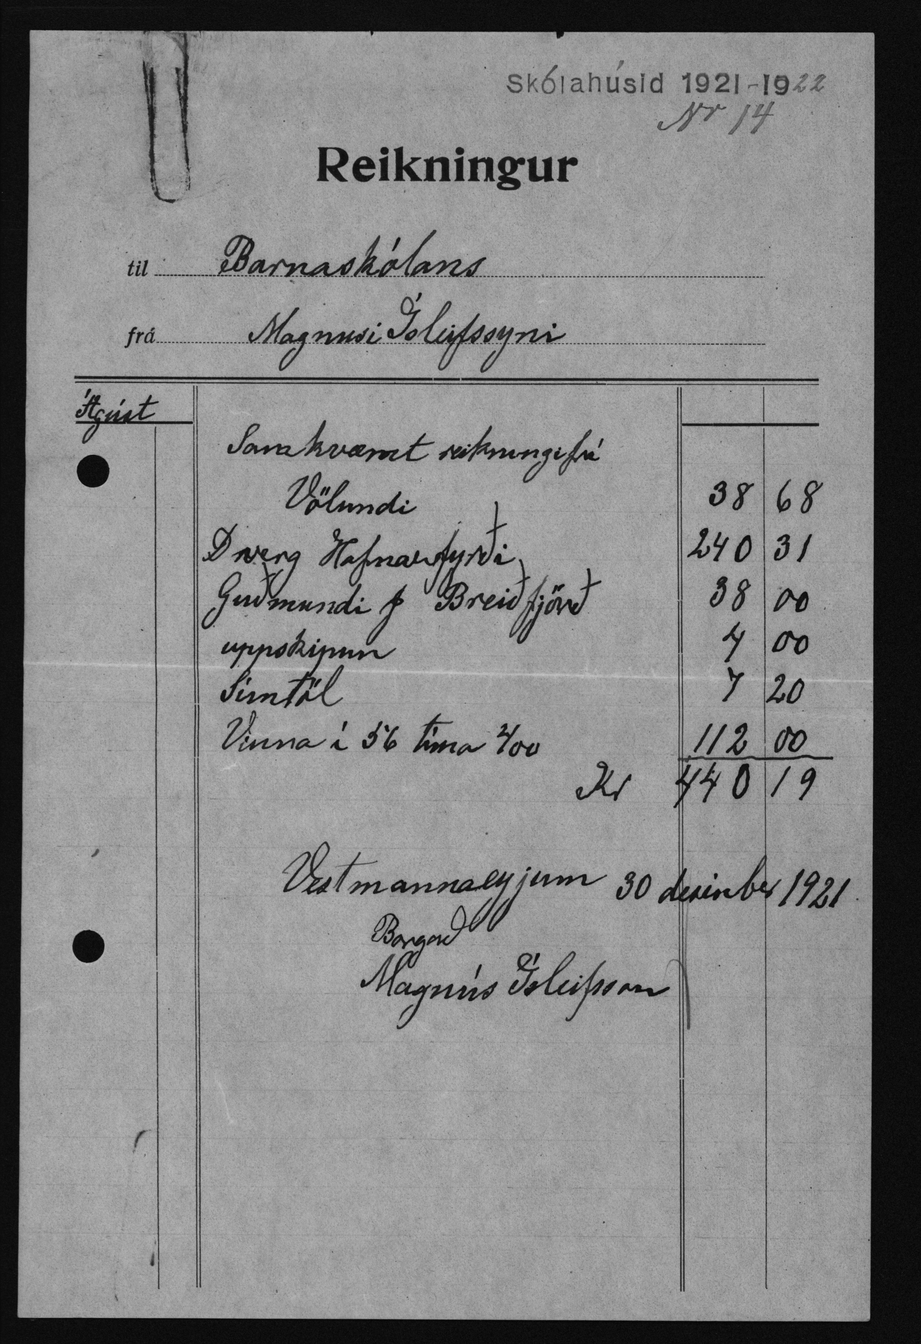 Skólahúsid 1921-1922
Nr 14
Reikningur
til Barnaskólans
frá Magnusi Ísleifssyni
Ágúst
Samkvæmt reikningi frá
Völundi 38 68
Dverg Hafnarfyrði 240 31
Guðmundi J Breiðfjörð 38 00
uppskipun 4 00
Símtöl 7 20
Vinna í 56 tíma 112 00
Kr 440 19
Vestmannaeyjum 30 desember 1921
Borgað
Magnús Ísleifsson